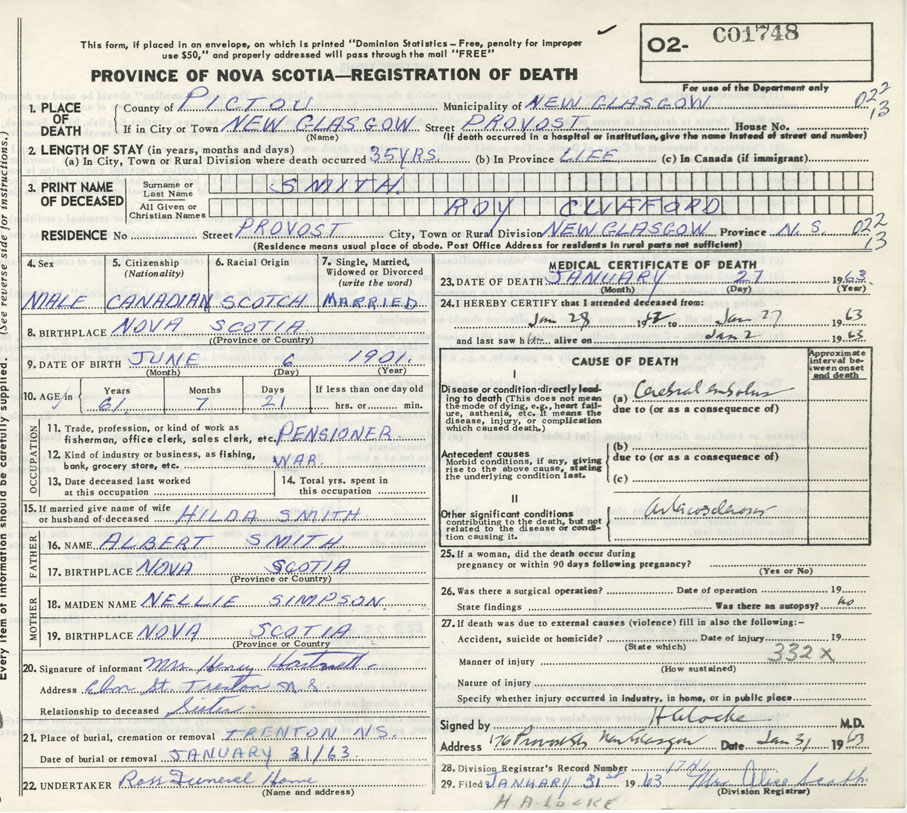 This form, if placed in an envelope, on which is printed "Dominion Statistics - Free, penalty for improper
use $50," and properly addressed will pass through the mail "FREE"
O2- C01748
PROVINCE OF NOVA SCOTIA—REGISTRATION OF DEATH
For use of the Department only
1. PLACE OF DEATH County of PICTOU Municipality of NEW GLASGOW 022
If in City or Town NEW GLASGOW Street PROVOST House No. 13
(Name) (If death occurred in a hospital or institution, give the name instead of street and number)
2. LENGTH OF STAY (in years, months and days)
(a) In City, Town or Rural Division where death occurred 35 YRS. (b) In Province LIFE (c) In Canada (if immigrant)
3. PRINT NAME OF DECEASED Surname or Last Name SMITH
All Given or Christian Names ROY CLIFFORD
RESIDENCE No Street PROVOST City, Town or Rural Division NEW GLASGOW Province N.S. 022
13
(Residence means usual place of abode. Post Office Address for residents in rural parts not sufficient)
4. Sex 5. Citizenship (Nationality) 6. Racial Origin 7. Single, Married, Widowed or Divorced (write the word)
MALE CANADIAN SCOTCH MARRIED
8. BIRTHPLACE NOVA SCOTIA
(Province or Country)
9. DATE OF BIRTH JUNE 6 1901.
(Month) (Day) (Year)
10. AGE Years Months Days If less than one day old
61 7 21 hrs. or min.
OCCUPATION
11. Trade, profession, or kind of work as
fisherman, office clerk, sales clerk, etc. PENSIONER
12. Kind of industry or business, as fishing,
bank, grocery store, etc. WAR
13. Date deceased last worked
at this occupation
14. Total yrs. spent in
this occupation
15. If married give name of wife
or husband of deceased HILDA SMITH
FATHER
16. NAME ALBERT SMITH
17. BIRTHPLACE NOVA SCOTIA
(Province or Country)
MOTHER
18. MAIDEN NAME NELLIE SIMPSON
19. BIRTHPLACE NOVA SCOTIA
(Province or Country)
20. Signature of informant Mrs Henry
Address Elm St. Trenton N S
Relationship to deceased Sister
21. Place of burial, cremation or removal TRENTON NS.
Date of burial or removal JANUARY 31/63
22. UNDERTAKER Ross Funeral Home
(Name and address)
MEDICAL CERTIFICATE OF DEATH
23. DATE OF DEATH JANUARY 27 1963
(Month) (Day) (Year)
24. I HEREBY CERTIFY that I attended deceased from:
Jan 28 1962 to Jan 27 1963
and last saw h alive on Jan 2 1963
CAUSE OF DEATH
Approximate interval between onset and death
I
Disease or condition directly leading to death (This does not mean the mode of dying, e.g., heart failure, asthenia, etc. It means the disease, injury, or complication which caused death.)
(a) Cerebral embolus
due to (or as a consequence of)
Antecedent causes
Morbid conditions, if any, giving rise to the above cause, stating the underlying condition last.
(b)
due to (or as a consequence of)
(c)
II
Other significant conditions
contributing to the death, but not related to the disease or condition causing it.
25. If a woman, did the death occur during
pregnancy or within 90 days following pregnancy?
(Yes or No)
26. Was there a surgical operation? Date of operation 19
State findings Was there an autopsy? no
27. If death was due to external causes (violence) fill in also the following:-
Accident, suicide or homicide? Date of injury 19
(State which) 332X
Manner of injury
(How sustained)
Nature of injury
Specify whether injury occurred in industry, in home, or in public place
Signed by H A Locke M.D.
Address 176 Provost St New Glasgow Date Jan 31 1963
28. Division Registrar's Record Number
29. Filed JANUARY 31st 1963 Mrs. Alice
(Division Registrar)
H. A. LOCKE
Every item of information should be carefully supplied. (See reverse side for instructions.)